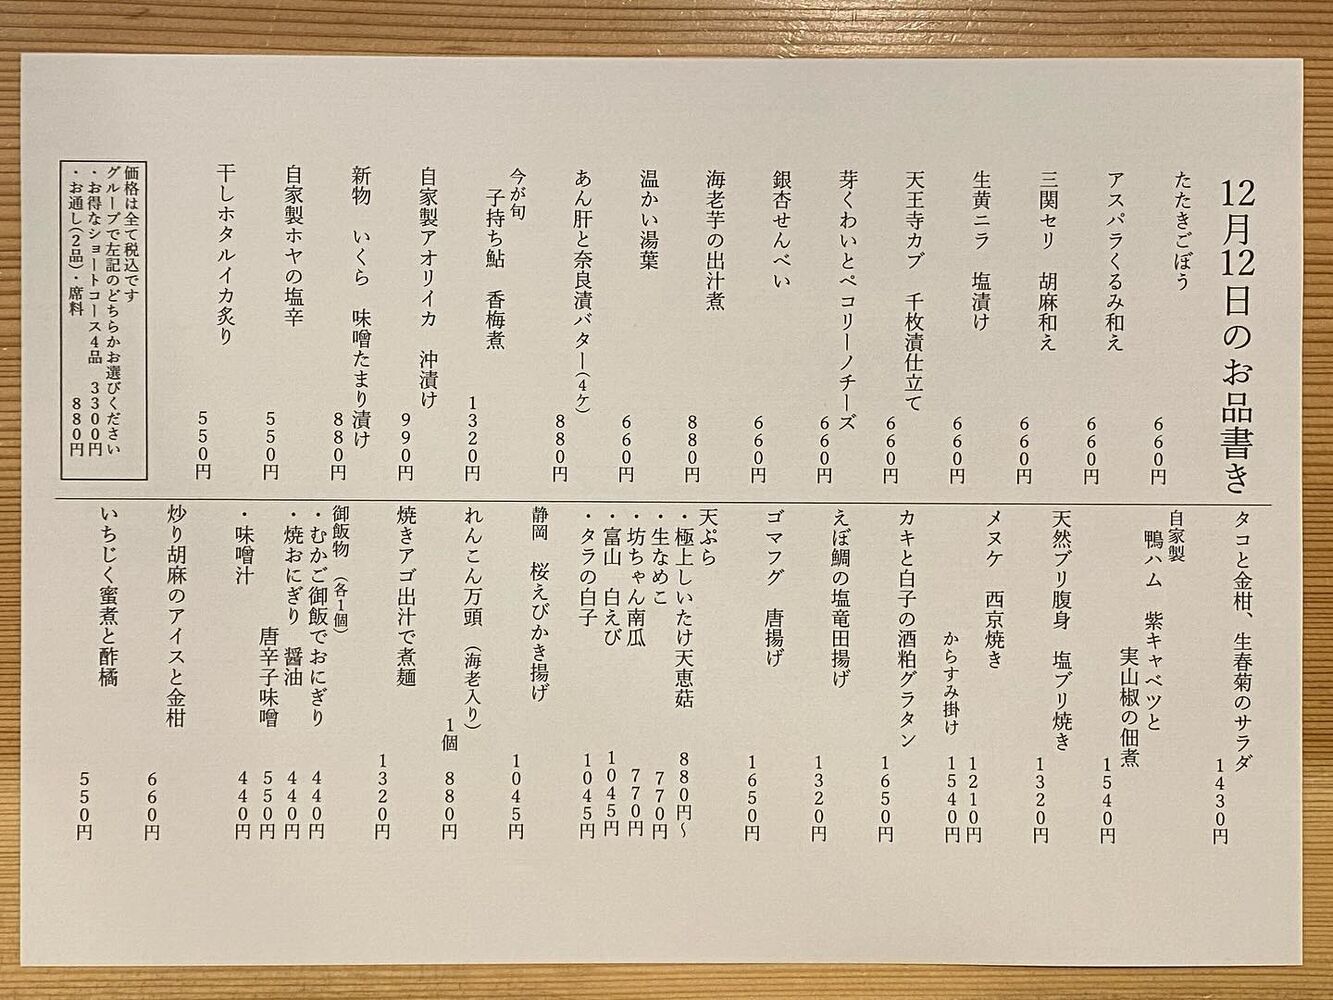 12月12日のお品書き
たたきごぼう 660円
アスパラくるみ和え 660円
三関セリ 胡麻和え 660円
生黄ニラ 塩漬け 660円
天王寺カブ 千枚漬仕立て 660円
芽くわいとペコリーノチーズ 660円
銀杏せんべい 660円
海老芋の出汁煮 880円
温かい湯葉 660円
あん肝と奈良漬バター(4ケ) 880円
今が旬
子持ち鮎 香梅煮 1320円
自家製アオリイカ 沖漬け 990円
新物 いくら 味噌たまり漬け 880円
自家製ホヤの塩辛 550円
干しホタルイカ炙り 550円
価格は全て税込です
グループで左記のどちらかお選びください
・お得なショートコース4品 3300円
・お通し(2品)・席料 880円
タコと金柑、生春菊のサラダ 1430円
自家製
鴨ハム 紫キャベツと
実山椒の佃煮 1540円
天然ブリ腹身 塩ブリ焼き 1320円
メヌケ 西京焼き 1210円
からすみ掛け 1540円
カキと白子の酒粕グラタン 1650円
えぼ鯛の塩竜田揚げ 1320円
ゴマフグ 唐揚げ 1650円
天ぷら
・極上しいたけ天恵菇 880円〜
・生なめこ 770円
・坊ちゃん南瓜 770円
・富山 白えび 1045円
・タラの白子 1045円
静岡 桜えびかき揚げ 1045円
れんこん万頭 (海老入り)
1個 880円
焼きアゴ出汁で煮麺 1320円
御飯物 (各1個)
・むかご御飯でおにぎり 440円
・焼おにぎり 醤油 440円
唐辛子味噌 550円
・味噌汁 440円
炒り胡麻のアイスと金柑 660円
いちじく蜜煮と酢橘 550円